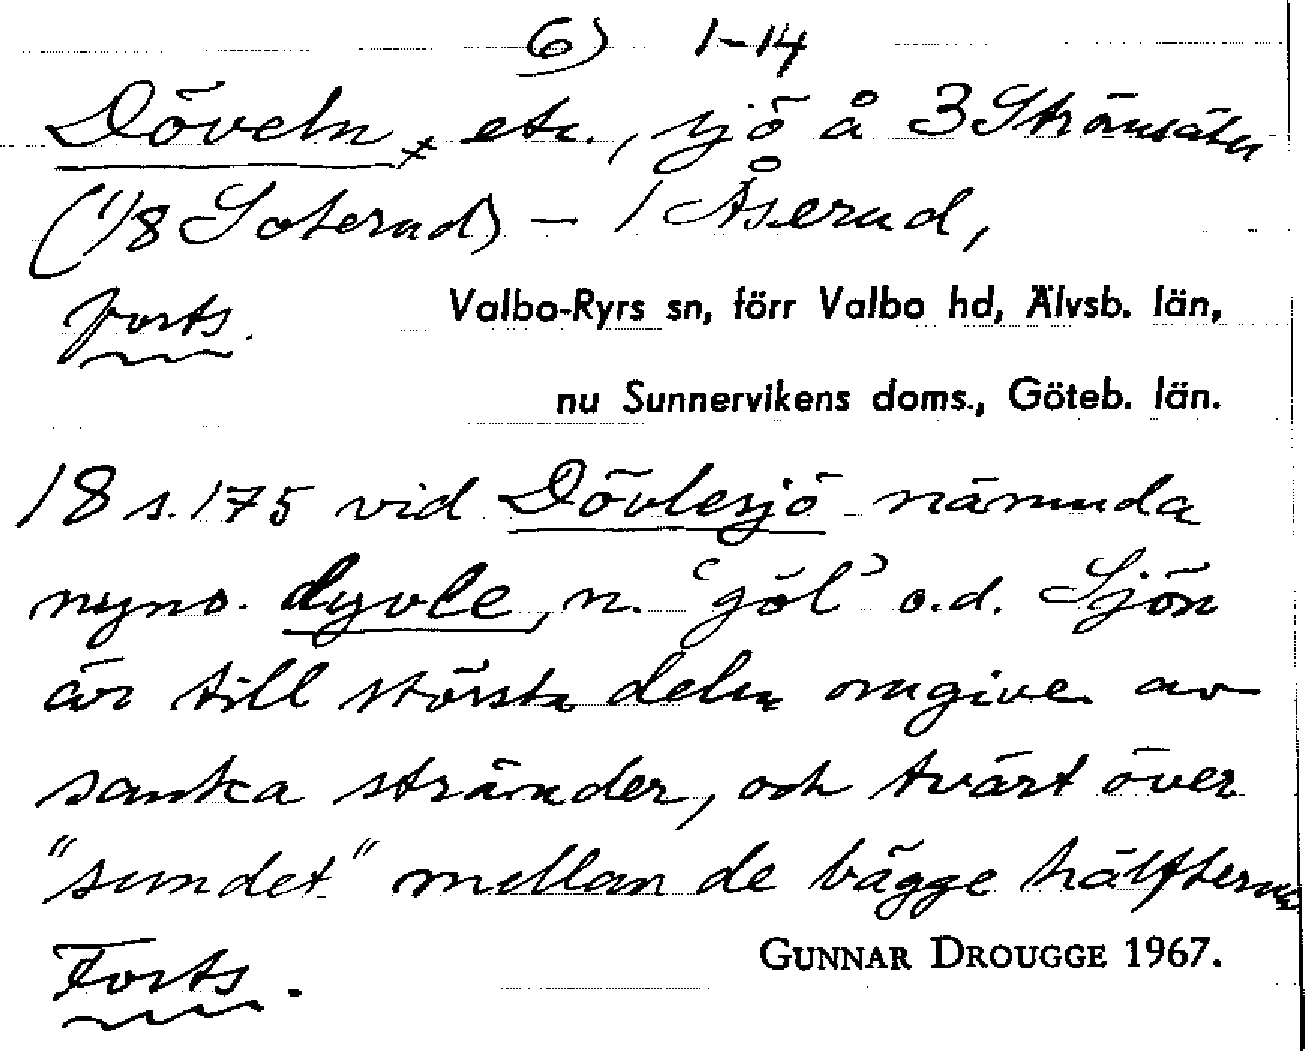 6) 1-14
Döveln, etc., sjö å 3 Strömsäter
(1/8 Soterud) – 1 Åserud,
forts. Valbo-Ryrs sn, förr Valbo hd, Älvsb. län,
nu Sunnervikens doms., Göteb. län.
18 s. 175 vid Dövlesjö nämnda
nyno. dyvle, n. 'göl' o.d. Sjön
är till största delen omgiven av
sanka stränder, och tvärt över
"sundet" mellan de bägge hälfterna
Forts. GUNNAR DROUGGE 1967.